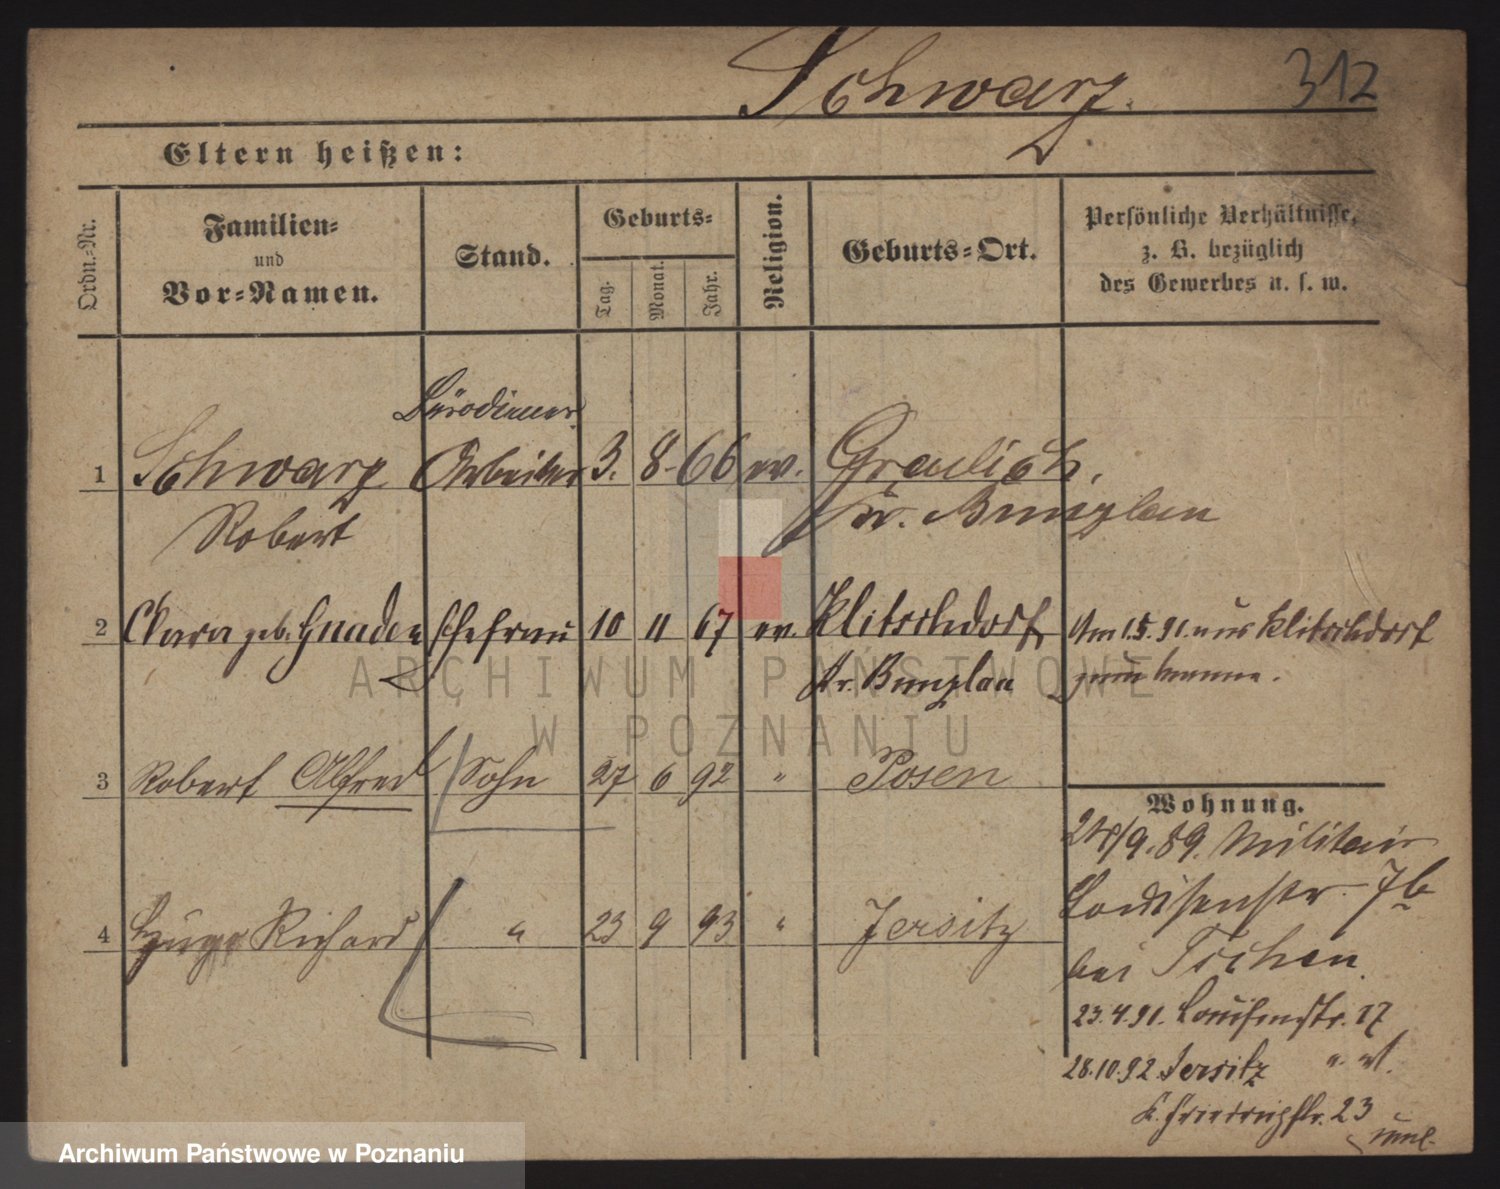 Schwarz.
312
Eltern heißen:
Ordn.-Nr.
Familien-
und
Vor-Namen.
Stand.
Geburts-
Tag.
Monat.
Jahr.
Religion.
Geburts-Ort.
Persönliche Verhältnisse,
z. B. bezüglich
des Gewerbes u. s. w.
Bürodiener
1 Schwarz Arbeiter 3. 8. 66 ev. Gr.
Robert Kr. Bunzlau
2 Clara geb. Gnaden Ehefrau 10 11 67 ev. Klitschdorf Am 1.5.91. aus Klitschdorf
Kr. Bunzlau
3 Robert Alfred Sohn 27 6 92 " Posen
Wohnung.
24/9.89. Militair
Louisenstr. 7b
4 Hugo Richard " 23 9 93 " Jersitz
bei Tschen
23.4.91. Louisenstr. 17
28.10.92 Jersitz
K. Friedrichstr. 23
ARCHIWUM PAŃSTWOWE
W POZNANIU
Archiwum Państwowe w Poznaniu